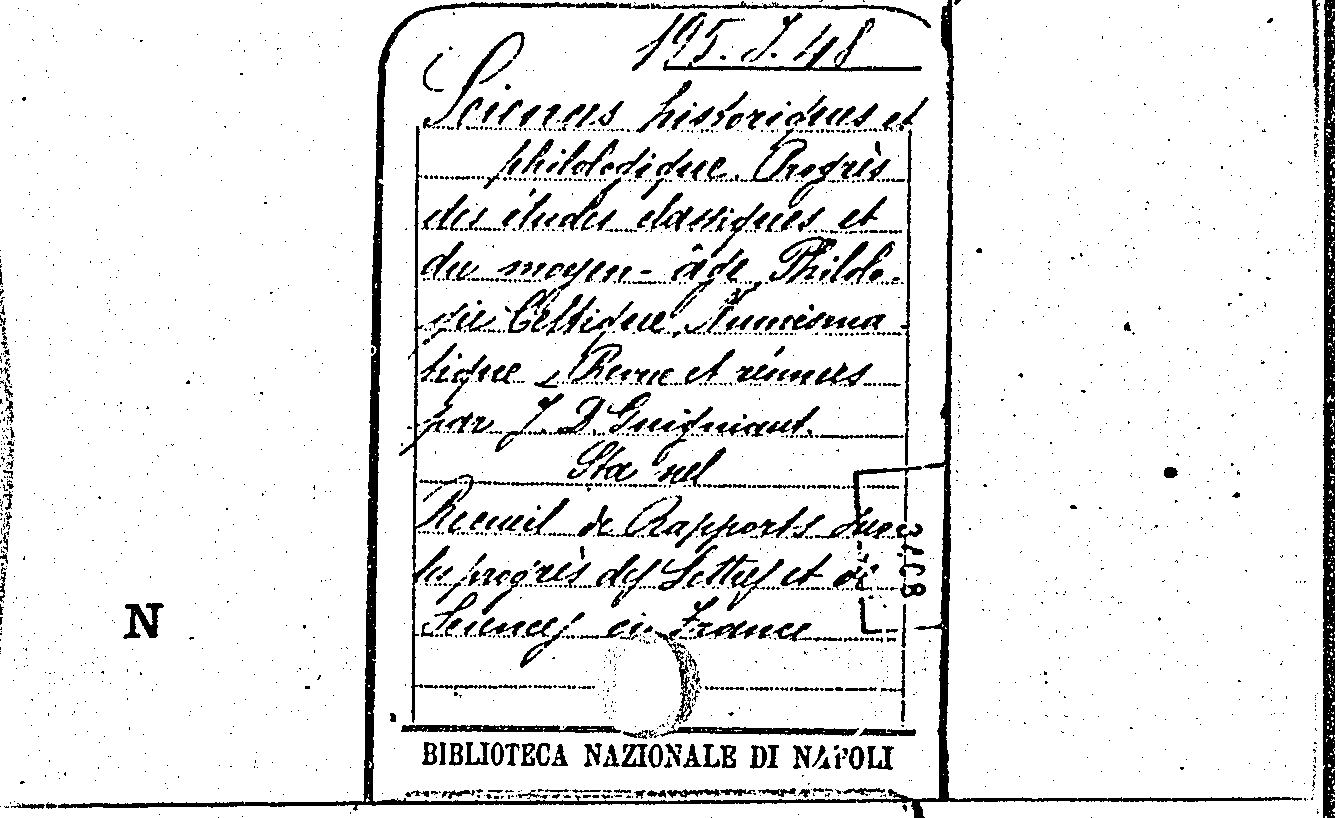 195. J. 48
Sciences historiques et
philologique. Progrès
des études classiques et
du moyen-âge, Philolo-
gie Celtique, Numisma-
tique - Revue et réunies
par J. D. Guigniaut.
Sta nel
Recueil de Rapports sur
les progrès des Lettres et de
Sciences en France
3408
N
BIBLIOTECA NAZIONALE DI NAPOLI